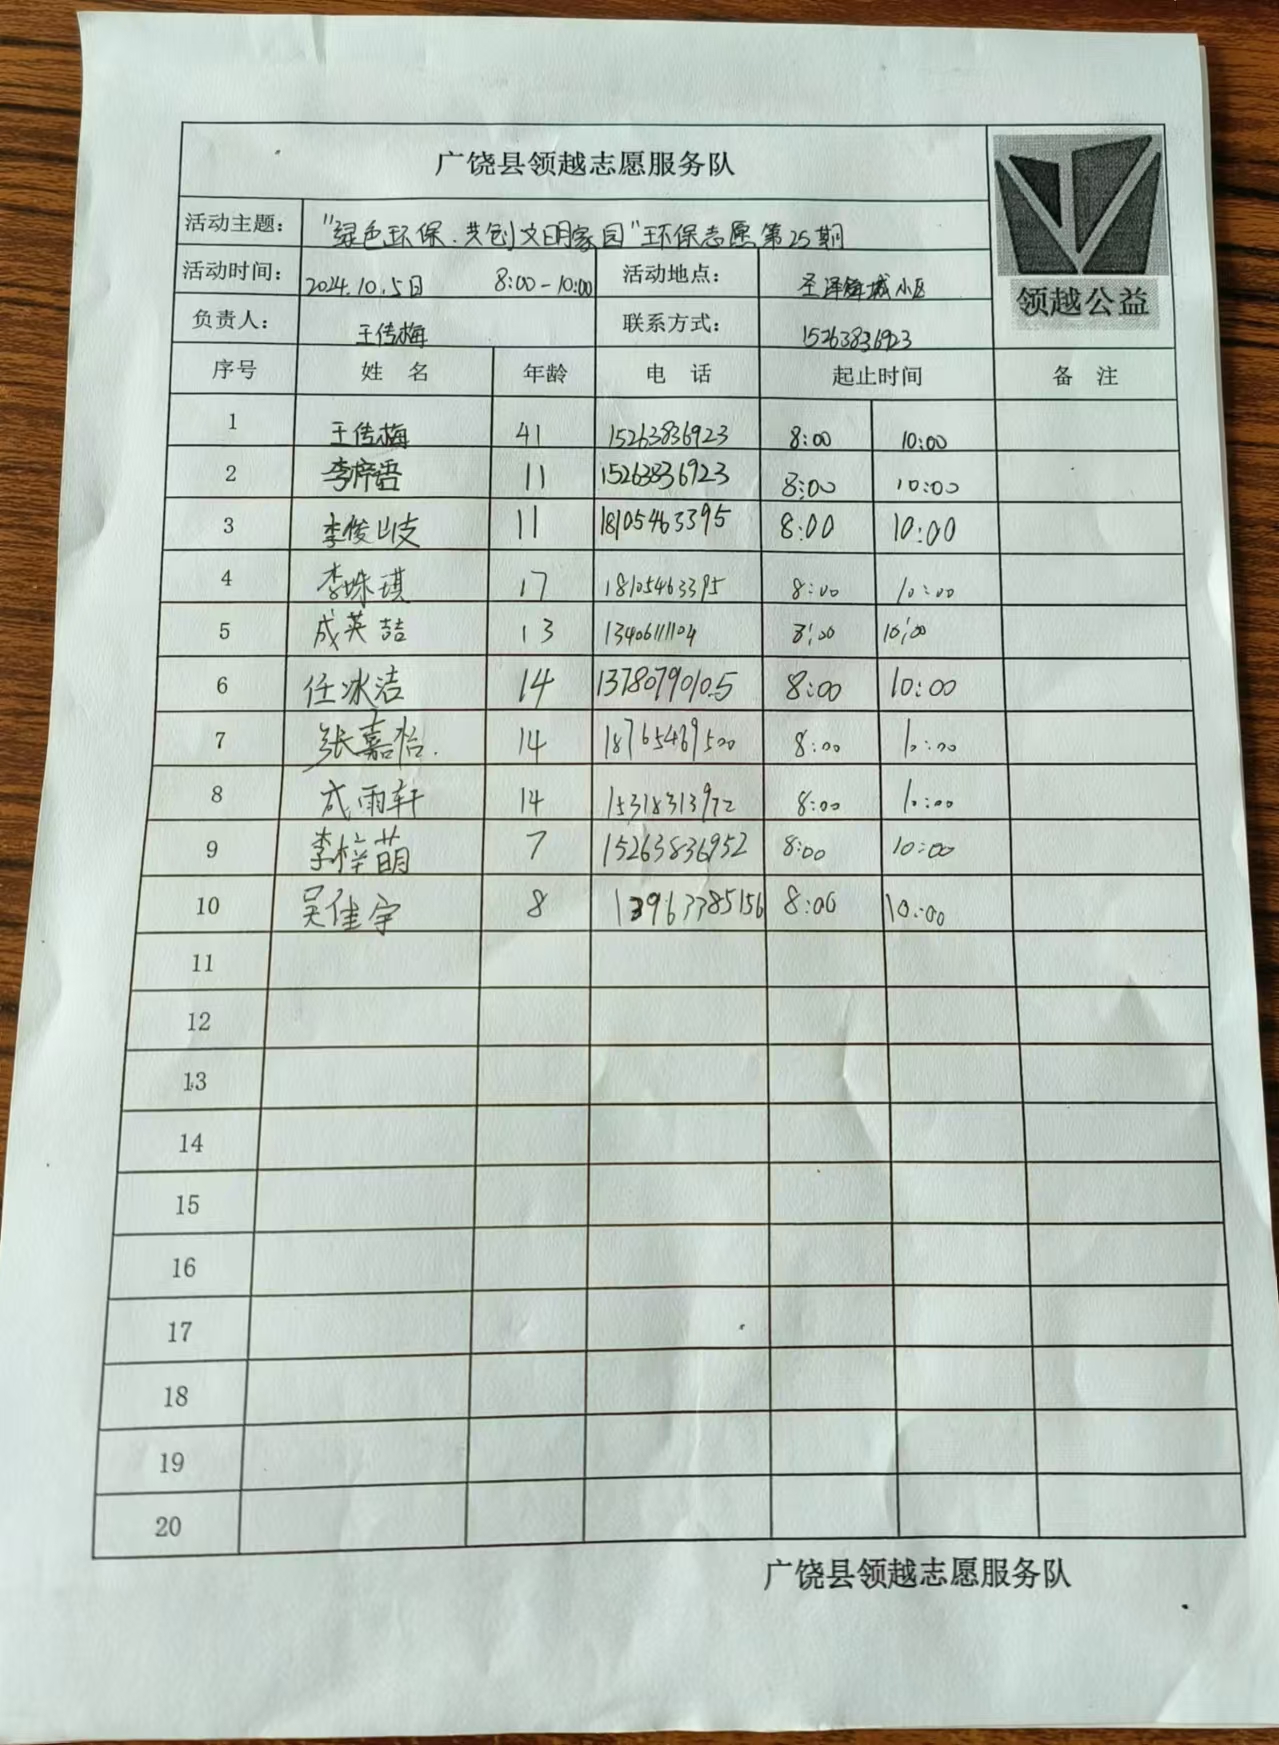 广饶县领越志愿服务队
活动主题： "绿色环保.共创文明家园"环保志愿第25期
活动时间： 2024.10.5日 8:00-10:00 活动地点： 圣泽锦城小区
负责人： 王传梅 联系方式： 15263836923
领越公益
序号 姓 名 年龄 电 话 起止时间 备 注
1 王传梅 41 15263836923 8:00 10:00
2 李梓语 11 15263836923 8:00 10:00
3 李俊岐 11 18105463395 8:00 10:00
4 李姝琪 17 18105463395 8:00 10:00
5 成英喆 13 13406111104 8:00 10:00
6 任冰洁 14 13780790105 8:00 10:00
7 张嘉怡. 14 18765469500 8:00 10:00
8 成雨轩 14 15318313972 8:00 10:00
9 李梓萌 7 15263836952 8:00 10:00
10 吴佳宇 8 13963385156 8:00 10:00
11
12
13
14
15
16
17
18
19
20
广饶县领越志愿服务队